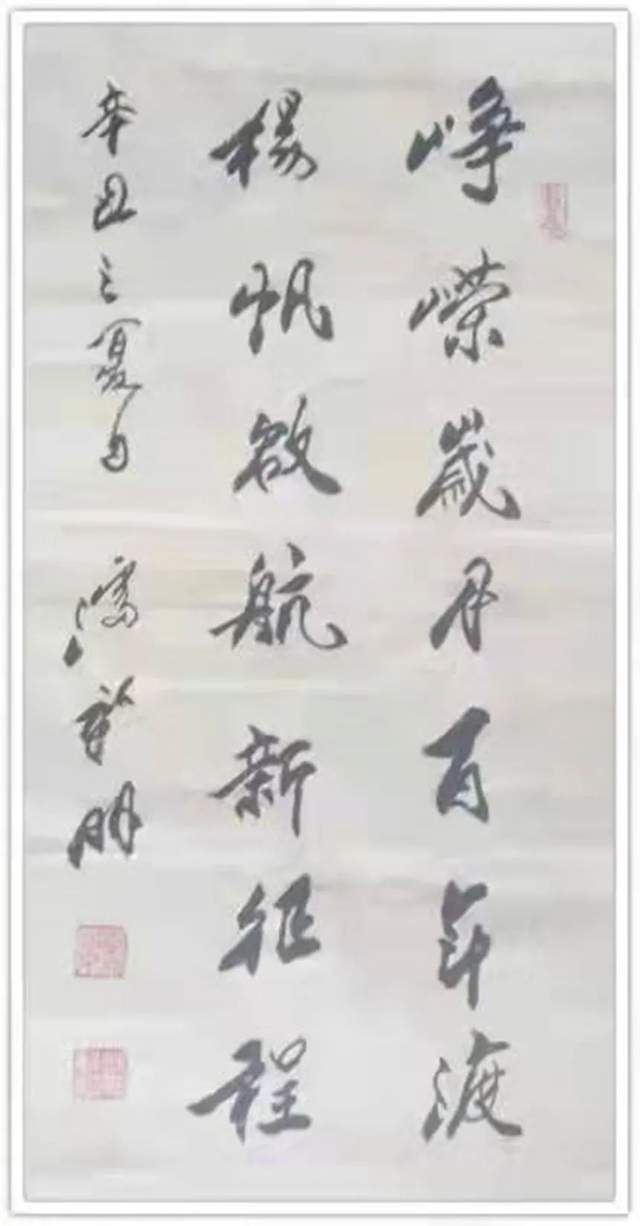 峥嵘岁月百年渡
杨帆启航新征程
辛丑之夏月